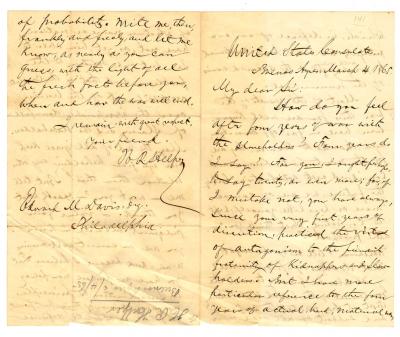 United States Consulate,
Buenos Ayres March 4 1865
My dear Sir:
How do you feel
after four years of war with
the slaveholders? Four years do
I say? For you, I ought perhaps
to say twenty, or even more; for, if
I mistake not, you have always,
since your very first years of
discretion, practiced the virtue
of antagonism to the
fraternity of Kidnappers and Slave-
holders. But I have more
particular reference to the four
years of actual hard, material war
of probability. Write me, then,
frankly and freely and let me
know, as nearly as you can
guess, with the light of all
the fresh facts before you,
when and how the war will end.
I remain with great respect,
your friend,
H. R. Helper
Edward M. Davis, Esq.,
Philadelphia.
H. R. Helper
Buenos Ayres 3/4/65